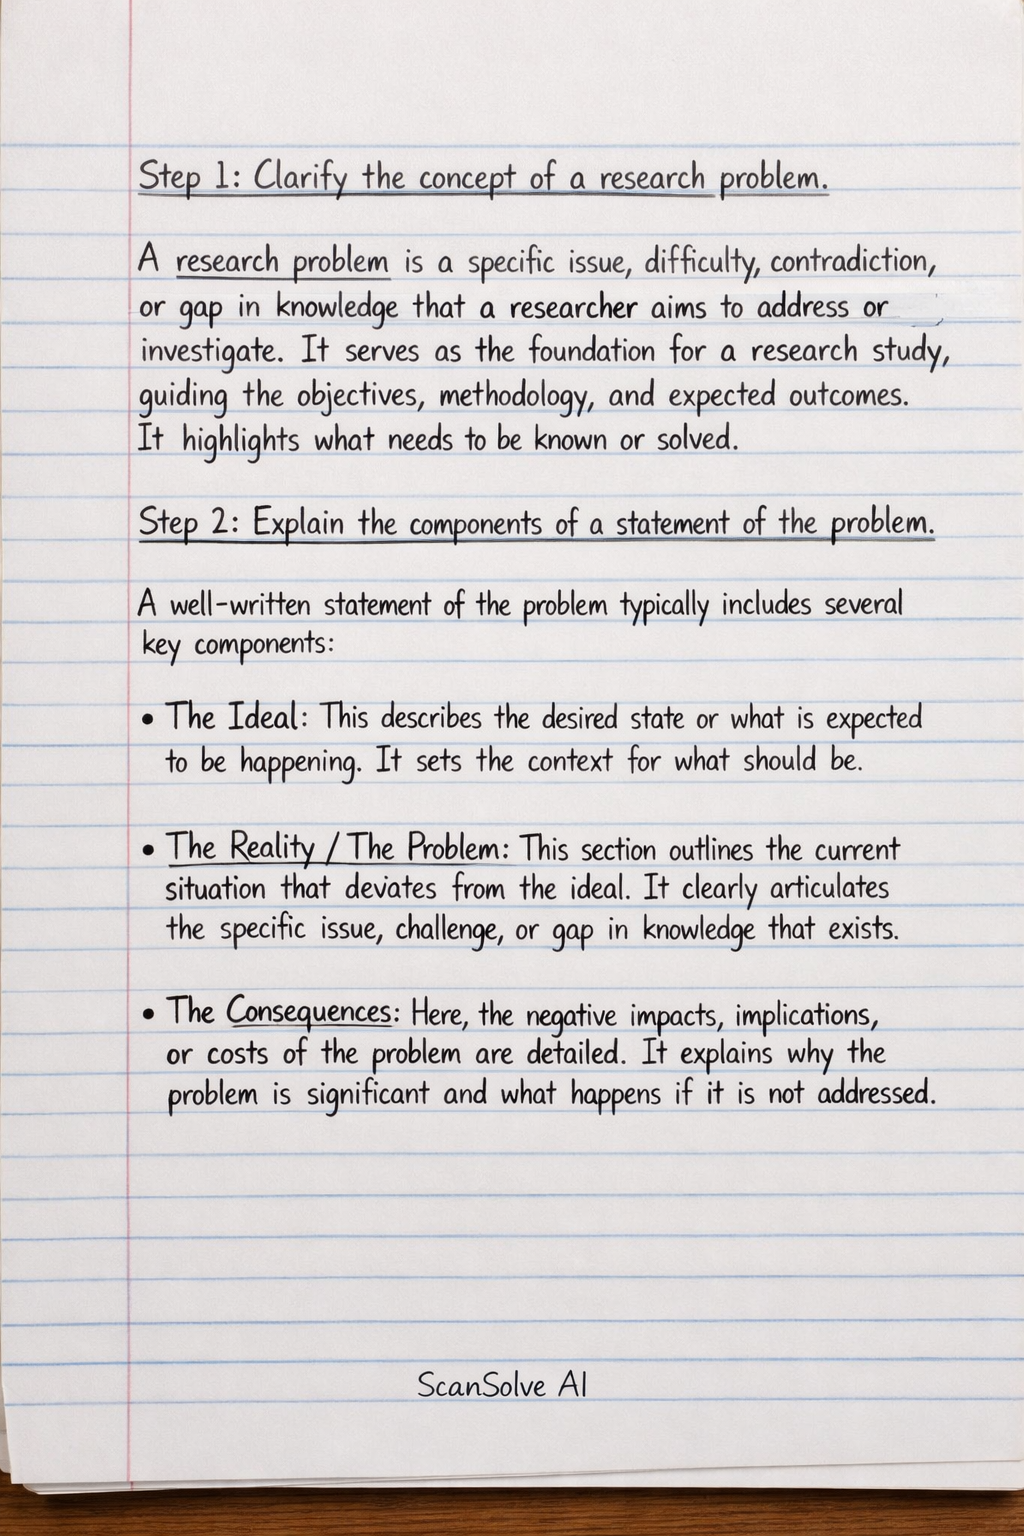 Step 1: Clarify the concept of a research problem.
A research problem is a specific issue, difficulty, contradiction,
or gap in knowledge that a researcher aims to address or
investigate. It serves as the foundation for a research study,
guiding the objectives, methodology, and expected outcomes.
It highlights what needs to be known or solved.
Step 2: Explain the components of a statement of the problem.
A well-written statement of the problem typically includes several
key components:
• The Ideal: This describes the desired state or what is expected
to be happening. It sets the context for what should be.
• The Reality / The Problem: This section outlines the current
situation that deviates from the ideal. It clearly articulates
the specific issue, challenge, or gap in knowledge that exists.
• The Consequences: Here, the negative impacts, implications,
or costs of the problem are detailed. It explains why the
problem is significant and what happens if it is not addressed.
ScanSolve AI